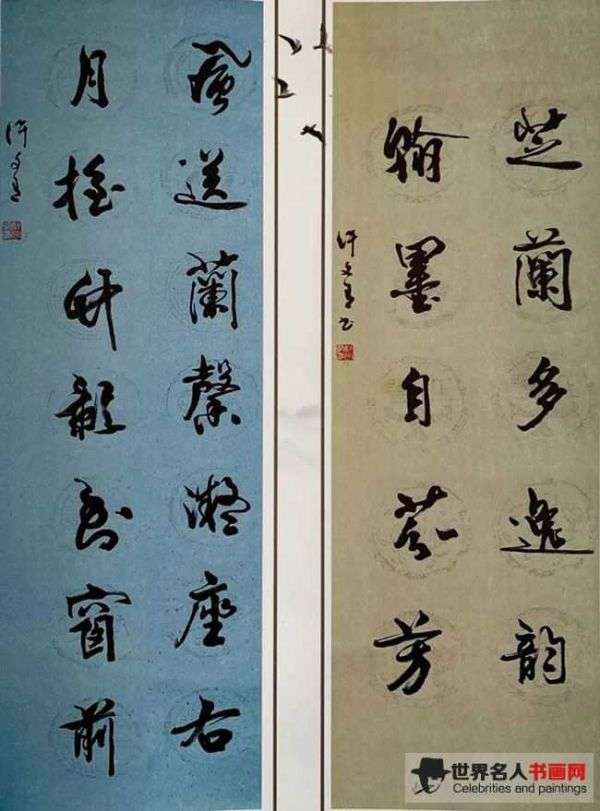 芝蘭多逸韵
翰墨自芬芳
许文青书
風送蘭馨凝座右
月摇竹影到窗前
许文青
世界名人书画网
Celebrities and paintings